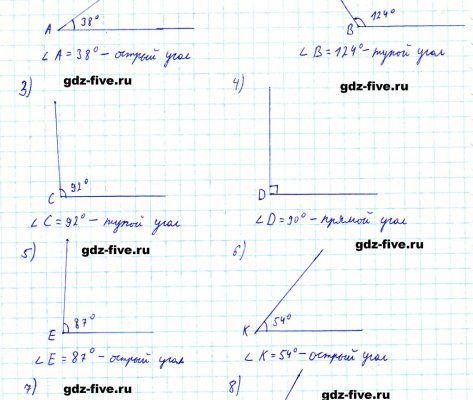 A 38° B 124°
∠A = 38° – острый угол ∠B = 124° – тупой угол
gdz-five.ru gdz-five.ru
3) 4)
C 92° D
∠C = 92° – тупой угол ∠D = 90° – прямой угол
gdz-five.ru gdz-five.ru
5) 6)
E 87° K 54°
∠E = 87° – острый угол ∠K = 54° – острый угол
7) gdz-five.ru 8) gdz-five.ru